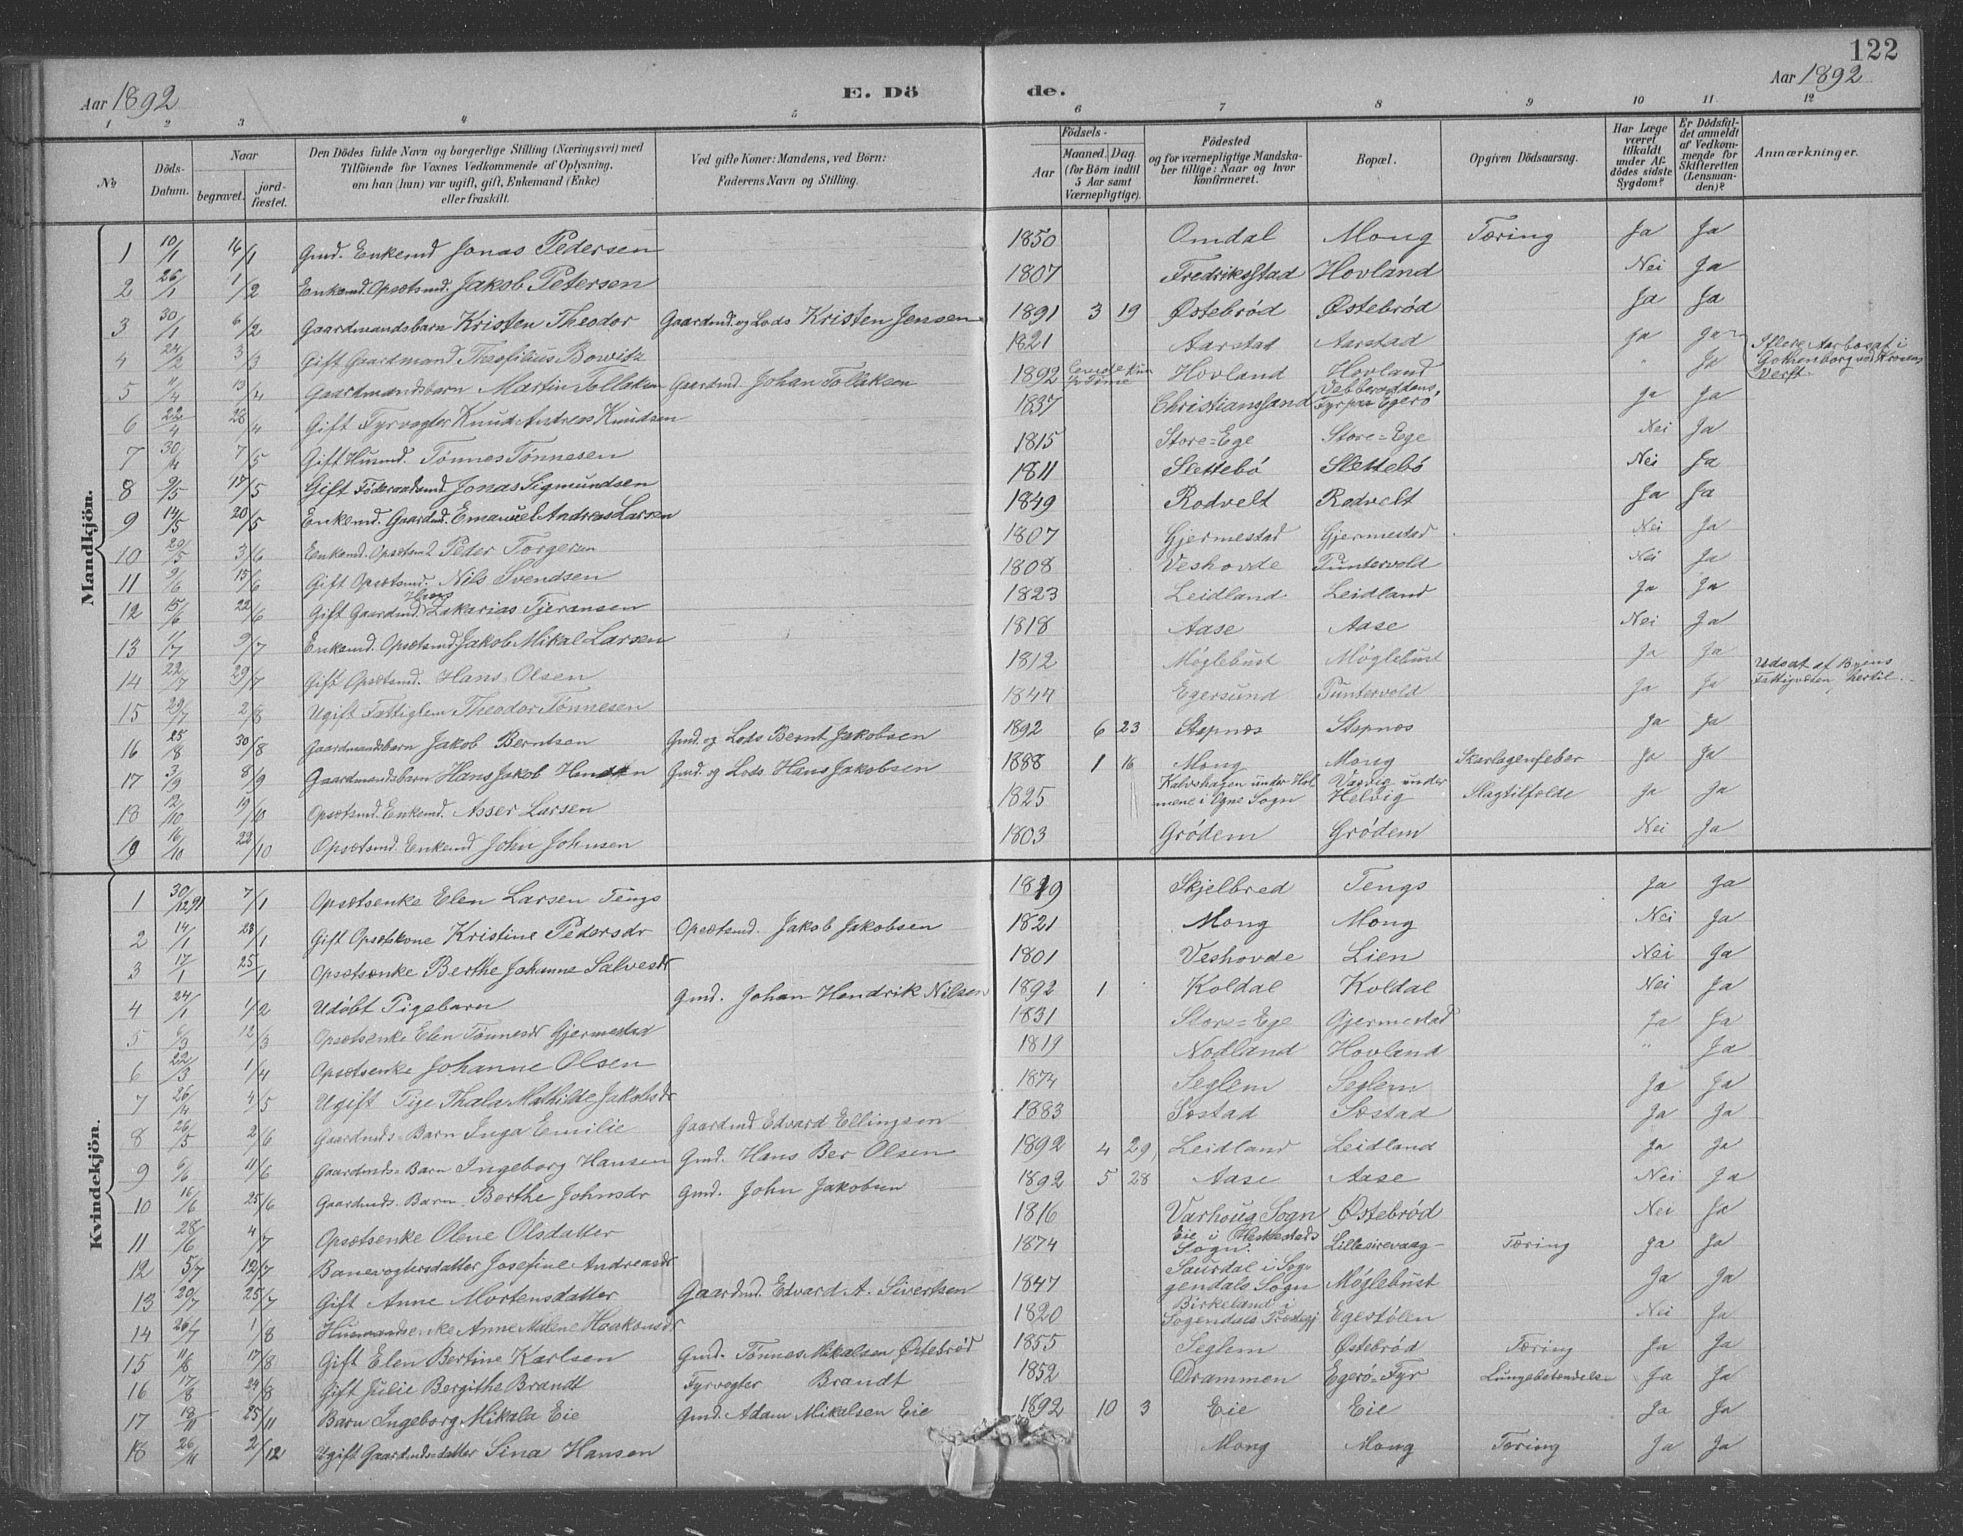 122
Aar 1892
E. Dö
de.
Aar 1892
1 2 3 4 5 6 7 8 9 10 11 12
No
Döds-Datum.
Naar
begravet.
jordfæstet.
Den Dödes fulde Navn og borgerlige Stilling (Næringsvei) med
Tilföiende for Voxnes Vedkommende af Oplysning,
om han (hun) var ugift, gift, Enkemand (Enke)
eller fraskilt.
Ved gifte Koner: Mandens, ved Börn:
Faderens Navn og Stilling.
Födsels-
Aar
Maaned. Dag.
(for Börn indtil
5 Aar samt
Værnepligtige).
Födested
og for værnepligtige Mandska-
ber tillige: Naar og hvor
konfirmeret.
Bopæl.
Opgiven Dödsaarsag.
Har Læge
været
tilkaldt
under Af-
dödes sidste
Sygdom?
Er Dödsfal-
det anmeldt
af Vedkom-
mende for
Skifteretten
(Lensman-
den)?
Anmærkninger.
Mandkjön.
1 10/1 16/1 Gmd. Enkemd Jonas Pedersen 1850 Omdal Mong Tæring Ja Ja
2 26/1 1/2 Enkemd. Opsætsmd. Jakob Petersen 1807 Fredriksstad Hovland Nei Ja
3 30/1 6/2 Gaardmandsbarn Kristen Theodor Gaardmd. og Lods Kristen Jensen 1891 3 19 Østebrød Østebrød Ja Ja
4 24/2 3/3 Gift Gaardmand Theofilius Bowitz 1821 Aarstad Aarstad Ja Ja
5 11/4 13/4 Gaardmandsbarn Martin Tollaksen Gaardmd Johan Tollaksen 1892 Hovland Hovland " Ja Flere Aar bosat i Gothenborg ved Verft.
6 22/4 28/4 Gift Fyrvogter Knud Andreas Knudsen 1837 Christianssand Fyr paa Egerø Ja Ja
7 30/4 7/5 Gift Husmd. Tønnes Tønnesen 1815 Store-Ege Store-Ege Nei Ja
8 9/5 17/5 Gift Föderaadsmd Jonas Sigmundsen 1811 Slettebö Slettebö Nei Ja
9 14/5 20/5 Enkemd. Gaardmd. Emanuel Andreas Larsen 1849 Rodvelt Rodvelt Ja Ja
10 29/5 3/6 Enkemd. Opsætsmd Peder Torgersen 1807 Gjermestad Gjermestad Nei Ja
11 9/6 15/6 Gift Opsætsmd. Nils Svendsen 1808 Veshovde Puntervold Nei Ja
12 15/6 22/6 Gift Gaardmd. Hans Zakarias Tjeransen 1823 Leidland Leidland Ja Ja
13 1/7 9/7 Enkemd. Opsætsmd Jakob Mikal Larsen 1818 Aase Aase Nei Ja
14 22/7 29/7 Gift Opsætsmd. Hans Olsen 1812 Møglebust Møglebust Ja Ja
15 29/7 2/8 Ugift Fattiglem Theodor Tønnesen 1844 Egersund Puntervold Ja Ja Udsat af Byens Fattigvæsen hertil.
16 25/8 30/8 Gaardmandsbarn Jakob Berntsen Gmd. og Lods Bernt Jakobsen 1892 6 23 Stapnæs Stapnæs Ja Ja
17 3/9 8/9 Gaardmandsbarn Hans Jakob Hansen Gmd. og Lods Hans Jakobsen 1888 1 16 Mong Mong Skarlagenfeber Ja Ja
18 12/10 19/10 Opsætsmd. Enkemd. Asser Larsen 1825 Kalvshagen under Holmene i Ogne Sogn Vasvig under Helvig Slagtilfælde Ja Ja
19 16/10 22/10 Opsætsmd. Enkemd John Johnsen 1803 Grødem Grødem Nei Ja
Kvindekjön.
1 30/12 91 7/1 Opsætsenke Elen Larsen Tengs 1819 Skjelbred Tengs Ja Ja
2 14/1 23/1 Gift Opsætskone Kristine Pedersdr Opsætsmd. Jakob Jakobsen 1821 Mong Mong Nei Ja
3 17/1 25/1 Opsætsenke Berthe Johanne Salvesdr 1801 Veshovde Lien Nei Ja
4 24/1 1/2 Udöbt Pigebarn Gmd. Johan Hendrik Nilsen 1892 1 Koldal Koldal Nei Ja
5 6/3 12/3 Opsætsenke Elen Tønnesdr Gjermestad 1831 Store-Ege Gjermestad Ja Ja
6 22/3 1/4 Opsætsenke Johanne Olsen 1819 Nodland Hovland " Ja
7 26/4 4/5 Ugift Pige Thala Mathilde Jakobsdr 1874 Seglem Seglem Ja Ja
8 26/5 2/6 Gaardmds-Barn Inga Emilie Gaardmd Edvard Ellingsen 1883 Sæstad Sæstad Ja Ja
9 6/6 11/6 Gaardmds-Barn Ingeborg Hansen Gmd. Hans Ber Olsen 1892 4 29 Leidland Leidland Ja Ja
10 16/6 25/6 Gaardmds. Barn Berthe Johnsdr Gmd. John Jakobsen 1892 5 28 Aase Aase Nei Ja
11 28/6 4/7 Opsætsenke Olene Olsdatter 1816 Varhoug Sogn Østebrød Nei Ja
12 5/7 12/7 Banevogtersdatter Josefine Andreasdr 1874 Eie i Hestestads Sogn. Lillesirevaag Tæring Ja Ja
13 20/7 25/7 Gift Anne Mortensdatter Gaardmd. Edvard A. Sivertsen 1847 Saurdal i Sogendals Sogn Møglebust Ja Ja
14 26/7 1/8 Husmandsenke Anne Malene Haakonsdr 1820 Birkeland i Sogendals Prestegj Egerstølen Nei Ja
15 11/8 17/8 Gift Elen Bertine Karlsen Gmd. Tønnes Mikalsen Østebrød 1855 Seglem Østebrød Tæring Ja Ja
16 17/8 24/8 Gift Julie Bergithe Brandt Fyrvogter Brandt 1852 Drammen Egerø-Fyr Lungebetendelse Ja Ja
17 18/11 25/11 Barn Ingeborg Mikala Eie Gmd. Adam Mikalsen Eie 1892 10 3 Eie Eie Ja Ja
18 26/11 2/12 Ugift Gaardmdsdatter Sina Hansen Mong Mong Tæring Ja Ja